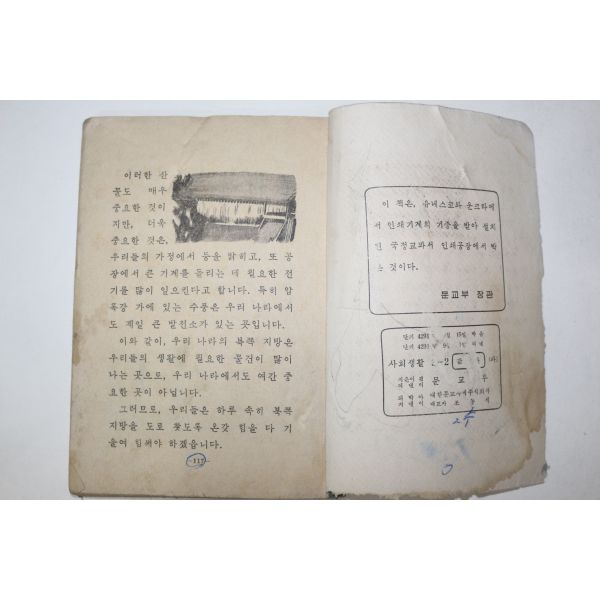 이러한 산
물도 매우
중요한 것이
지만, 더욱
중요한 것은,
우리들의 가정에서 등을 밝히고, 또 공
장에서 큰 기계를 돌리는 데 필요한 전
기를 많이 일으킨다고 합니다. 특히 압
록강 가에 있는 수풍은 우리 나라에서
도 제일 큰 발전소가 있는 곳입니다.
이와 같이, 우리 나라의 북쪽 지방은
우리들의 생활에 필요한 물건이 많이
나는 곳으로, 우리 나라에서도 여간 중
요한 곳이 아닙니다.
그러므로, 우리들은 하루 속히 북쪽
지방을 도로 찾도록 온갖 힘을 다 기
울여 힘써야 하겠읍니다.
-117-
이 책은, 유네스코와 운크라에
서 인쇄기계의 기증을 받아 설치
된 국정교과서 인쇄공장에서 박
는 것이다.
문교부 장관
단기 429 15일 박음
단기 429
사회생활 2-2
지은이 문교부
대한문교서적주식회사
대표자